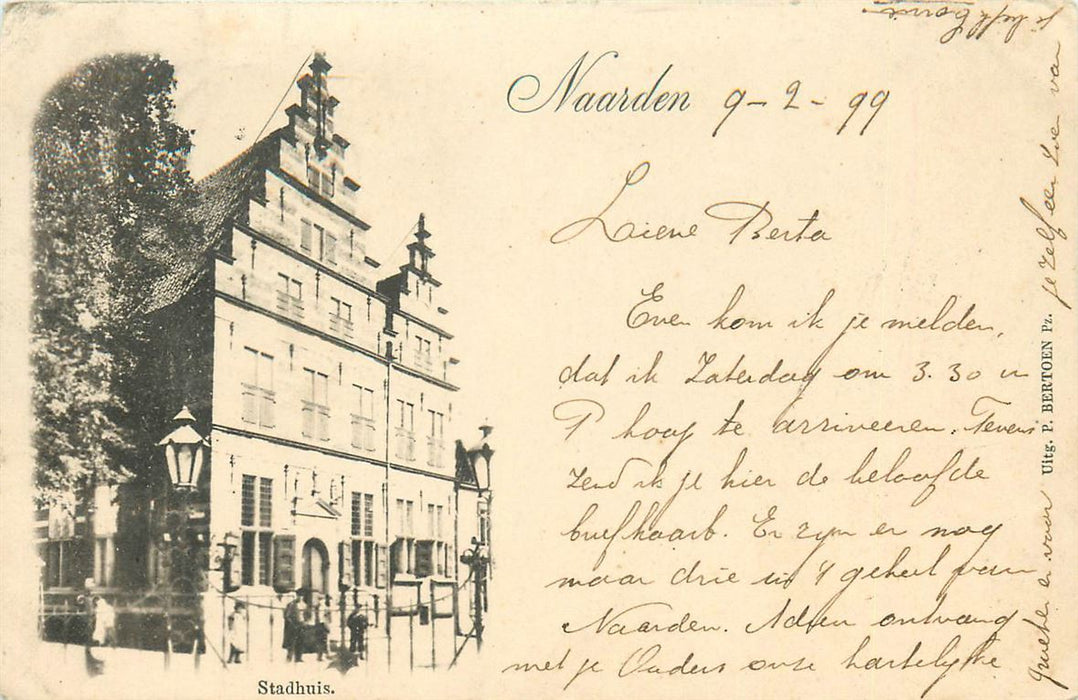 Naarden 9-2-99
Lieve Berta
Even kom ik je melden,
dat ik Zaterdag om 3.30 u
P hoop te arriveeren. Tevens
zend ik je hier de beloofde
briefkaart. Er zyn er nog
maar drie in 't geheel van
Naarden. Adieu ontvang
met je Ouders onze hartelyke
groeten en voor
je zelf een zoen van
je
Uitg. P. BERTOEN Pz.
Stadhuis.